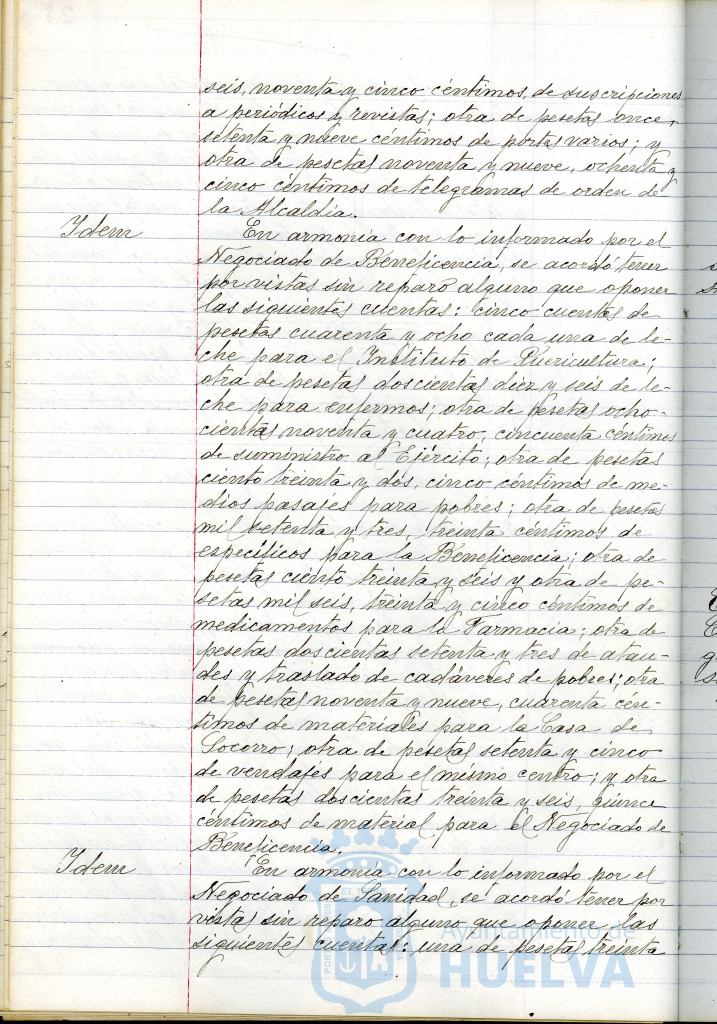 seis, noventa y cinco céntimos, de suscripciones
a periódicos y revistas; otra de pesetas once,
setenta y nueve céntimos de portes varios; y
otra de pesetas noventa y nueve, ochenta y
cinco céntimos de telegramas de orden de
la Alcaldía.
Idem
En armonía con lo informado por el
Negociado de Beneficencia, se acordó tener
por vistas sin reparo alguno que oponer
las siguientes cuentas: cinco cuentas de
pesetas cuarenta y ocho cada una de le-
che para el Instituto de Puericultura;
otra de pesetas doscientas diez y seis de le-
che para enfermos; otra de pesetas ocho-
cientas noventa y cuatro, cincuenta céntimos
de suministro al Ejército; otra de pesetas
ciento treinta y dos, cinco céntimos de me-
dios pasajes para pobres; otra de pesetas
mil setenta y tres, treinta céntimos de
específicos para la Beneficencia; otra de
pesetas ciento treinta y seis y otra de pe-
setas mil seis, treinta y cinco céntimos de
medicamentos para la Farmacia; otra de
pesetas doscientas setenta y tres de ataú-
des y traslado de cadáveres de pobres; otra
de pesetas noventa y nueve, cuarenta cén-
timos de materiales para la Casa de
Socorro; otra de pesetas setenta y cinco
de vendajes para el mismo centro; y otra
de pesetas doscientas treinta y seis, quince
céntimos de material para el Negociado de
Beneficencia.
Idem
En armonía con lo informado por el
Negociado de Sanidad, se acordó tener por
vistas sin reparo alguno que oponer, las
siguientes cuentas: una de pesetas treinta
Ayuntamiento de
HUELVA